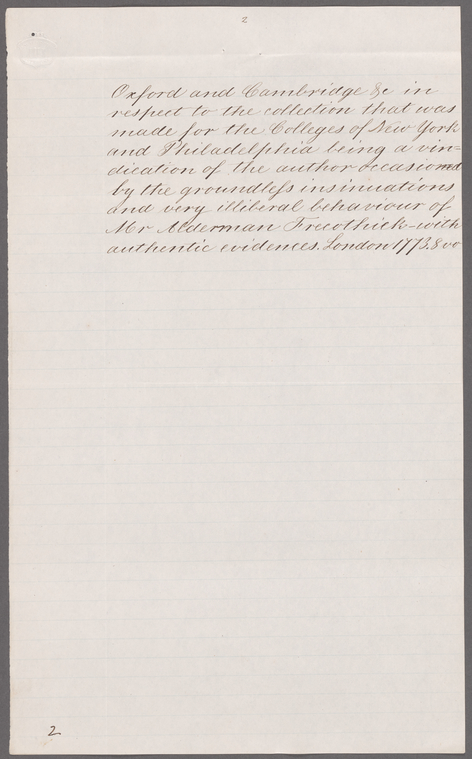 2
Oxford and Cambridge &c in
respect to the collection that was
made for the Colleges of New York
and Philadelphia being a vin-
dication of the author occasioned
by the groundless insinuations
and very illiberal behaviour of
Mr Alderman Trecothick - with
authentic evidences. London 1773. 8vo
2